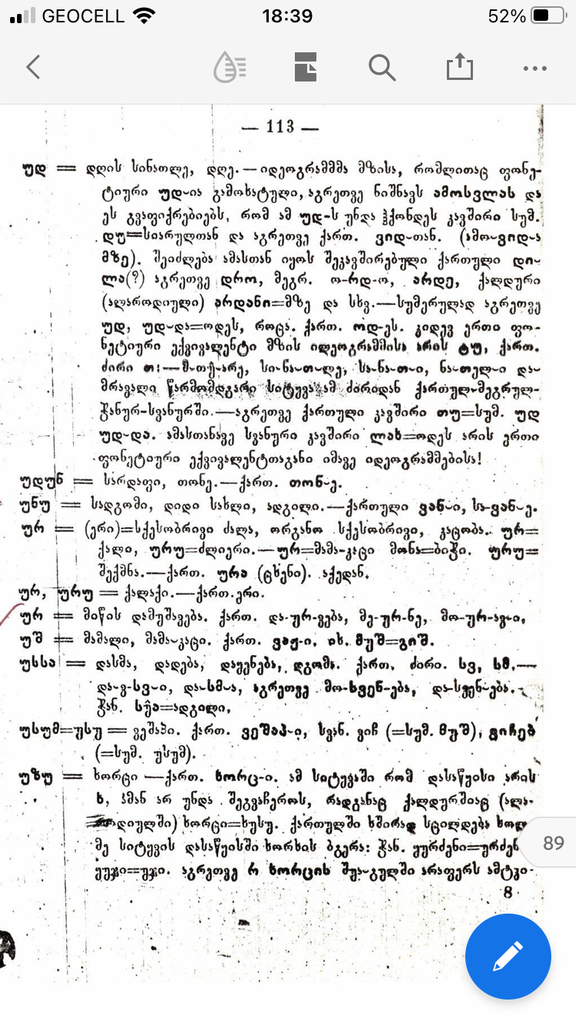 GEOCELL 18:39 52%
— 113 —
უდ = დღის სინათლე, დღე.—იდეოგრამმა მზისა, რომლითაც ფონე-
ტიური უდ-ია გამოხატული, აგრეთვე ნიშნავს ამოსვლას და
ეს გვაფიქრებიებს, რომ ამ უდ-ს უნდა ჰქონდეს კავშირი სუმ.
დუ=სიარულთან და აგრეთვე ქართ. ვიდ-თან. (ამო-ვიდ-ა
მზე). შეიძლება ამასთან იყოს შეკავშირებული ქართული დი-
ლა(?) აგრეთვე დრო, მეგრ. ო-რდ-ო, არდე, ქალდური
(ალაროდიული) არდანი=მზე და სხვ.—სუმერულად აგრეთვე
უდ, უდ-და=ოდეს, როცა. ქართ. ოდ-ეს. კიდევ ერთი ფო-
ნეტიური ექვივალენტი მზის იდეოგრამმისა არის ტუ, ქართ.
ძირი თ: მ-თვარე, სი-ნათ-ლე, სა-ნა-თ-ი, ნათელი და
მრავალი წარმომდგარი სიტყვა ამ ძირიდან ქართულ-მეგრულ-
ჭანურ-სვანურში.—აგრეთვე ქართული კავშირი თუ=სუმ. უდ
უდ-და. ამასთანავე სვანური კავშირი ლახ=ოდეს არის ერთი
ფონეტიური ექვივალენტთაგანი იმავე იდეოგრამმებისა!
უდუნ = სარდაფი, თონე.—ქართ. თონ-ე.
უნუ = სადგომი, დიდი სახლი, ადგილი.—ქართული ვან-ი, სა-ვან-ე.
ურ = (ერი)=სქესობრივი ძალა, ორგანო სქესობრივი, კაცობა. ურ=
ქალი, ურუ=ძლიერი.—ურ=მამა-კაცი მონა=ბიჭი. ურუ=
შექმნა.—ქართ. ურა (ცხენი). აქედან.
ურ, ურუ = ქალაქი.—ქართ. ერი.
ურ = მიწის დამუშავება. ქართ. და-ურ-ვება, მე-ურ-ნე, მო-ურ-ავ-ი.
უშ = მამალი, მამა-კაცი. ქართ. ვაჟ-ი. იხ. მუშ=გიშ.
უსსა = დასმა, დადება, დაყენება, დგომა. ქართ. ძირი. სვ, სმ.—
და-ვ-სვ-ი, და-სმ-ა, აგრეთვე მო-სვენ-ება, და-სვენ-ება.
უსუმ=უსუ = ვეშაპი. ქართ. ვეშაპ-ი, სვან. ვიჩ (=სუმ. მუშ), გიჩებ
(=სუმ. უსუმ).
უზუ = ხორცი —ქართ. ხორც-ი. ამ სიტყვაში რომ დასაწყისი არის
ხ, ამან არ უნდა შეგვაჩეროს, რადგანაც ქალდურშიაც (ალა-
როდიულში) ხორცი=ხუსუ. ქართულში ხშირად სცილდება ხოლ-
მე სიტყვის დასაწყისში ხორხის ბგერა: ჭან. ყურძენი=ურძენ
ყუჯი=უჯი. აგრეთვე რ ხორცის შუა-გულში არაფერს ამტკი-
8
89